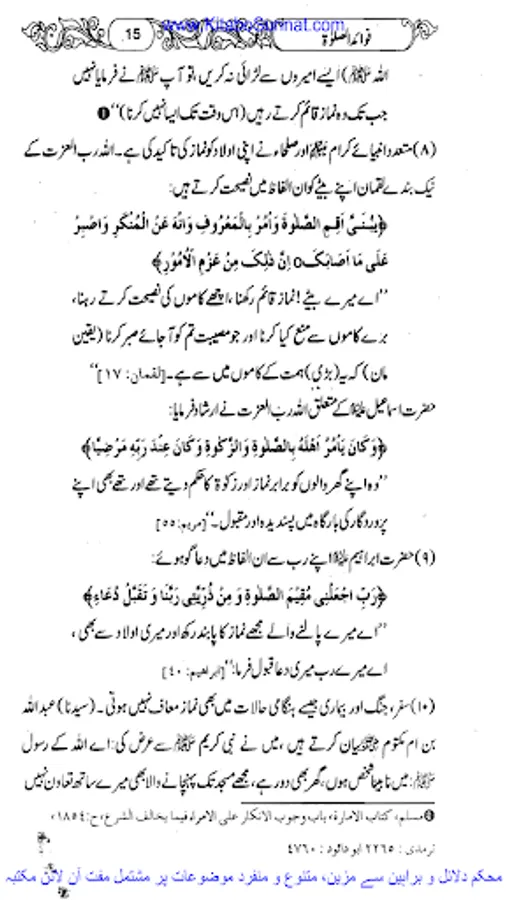 www.KitaboSunnat.com
فوائد الصلوٰۃ 15
اللہ ﷺ) ایسے امیروں سے لڑائی نہ کریں، تو آپ ﷺ نے فرمایا نہیں
جب تک وہ نماز قائم کرتے رہیں (اس وقت تک ایسا نہیں کرنا)‘‘ ❶
(۸) متعدد انبیائے کرام ﷩ اور صلحاء نے اپنی اولاد کو نماز کی تاکید کی ہے۔ اللہ رب العزت کے
نیک بندے لقمان اپنے بیٹے کو ان الفاظ میں نصیحت کرتے ہیں:
﴿يٰبُنَىَّ اَقِمِ الصَّلٰوةَ وَاْمُرْ بِالْمَعْرُوفِ وَانْهَ عَنِ الْمُنْكَرِ وَاصْبِرْ
عَلٰى مَا اَصَابَكَ o اِنَّ ذٰلِكَ مِنْ عَزْمِ الْاُمُوْرِ﴾
’’اے میرے بیٹے! نماز قائم رکھنا، اچھے کاموں کی نصیحت کرتے رہنا،
برے کاموں سے منع کیا کرنا اور جو مصیبت تم کو آ جائے صبر کرنا (یقین
مان) کہ یہ (بڑی) ہمت کے کاموں میں سے ہے۔ [لقمان: ۱۷]‘‘
حضرت اسماعیل علیہ السلام کے متعلق اللہ رب العزت نے ارشاد فرمایا:
﴿وَكَانَ يَاْمُرُ اَهْلَهٗ بِالصَّلٰوةِ وَالزَّكٰوةِ وَكَانَ عِنْدَ رَبِّهٖ مَرْضِيًّا﴾
’’وہ اپنے گھر والوں کو برابر نماز اور زکوٰۃ کا حکم دیتے تھے اور تھے بھی اپنے
پروردگار کی بارگاہ میں پسندیدہ اور مقبول۔‘‘ [مریم: ۵۵]
(۹) حضرت ابراہیم علیہ السلام اپنے رب سے ان الفاظ میں دعا گو ہوئے:
﴿رَبِّ اجْعَلْنِى مُقِيْمَ الصَّلٰوةِ وَ مِنْ ذُرِّيَّتِى رَبَّنَا وَ تَقَبَّلْ دُعَاءِ﴾
’’اے میرے پالنے والے مجھے نماز کا پابند رکھ اور میری اولاد سے بھی،
اے میرے رب میری دعا قبول فرما:‘‘ [ابراهيم: ٤٠]
(۱۰) سفر، جنگ اور بیماری جیسے ہنگامی حالات میں بھی نماز معاف نہیں ہوتی۔ (سیدنا) عبداللہ
بن ام مکتوم رضی اللہ عنہ بیان کرتے ہیں، میں نے نبی کریم ﷺ سے عرض کی: اے اللہ کے رسول
ﷺ: میں نابینا شخص ہوں، گھر بھی دور ہے، مجھے مسجد تک پہنچانے والا بھی میرے ساتھ تعاون نہیں
❶ مسلم، کتاب الامارة، باب وجوب الانكار على الامراء فيما يخالف الشرع، ح: ١٨٥٤،
ترمذی: ٢٢٦٥ ابو داؤد: ٤٧٦٠
محکم دلائل و براہین سے مزین، متنوع و منفرد موضوعات پر مشتمل مفت آن لائن مکتبہ